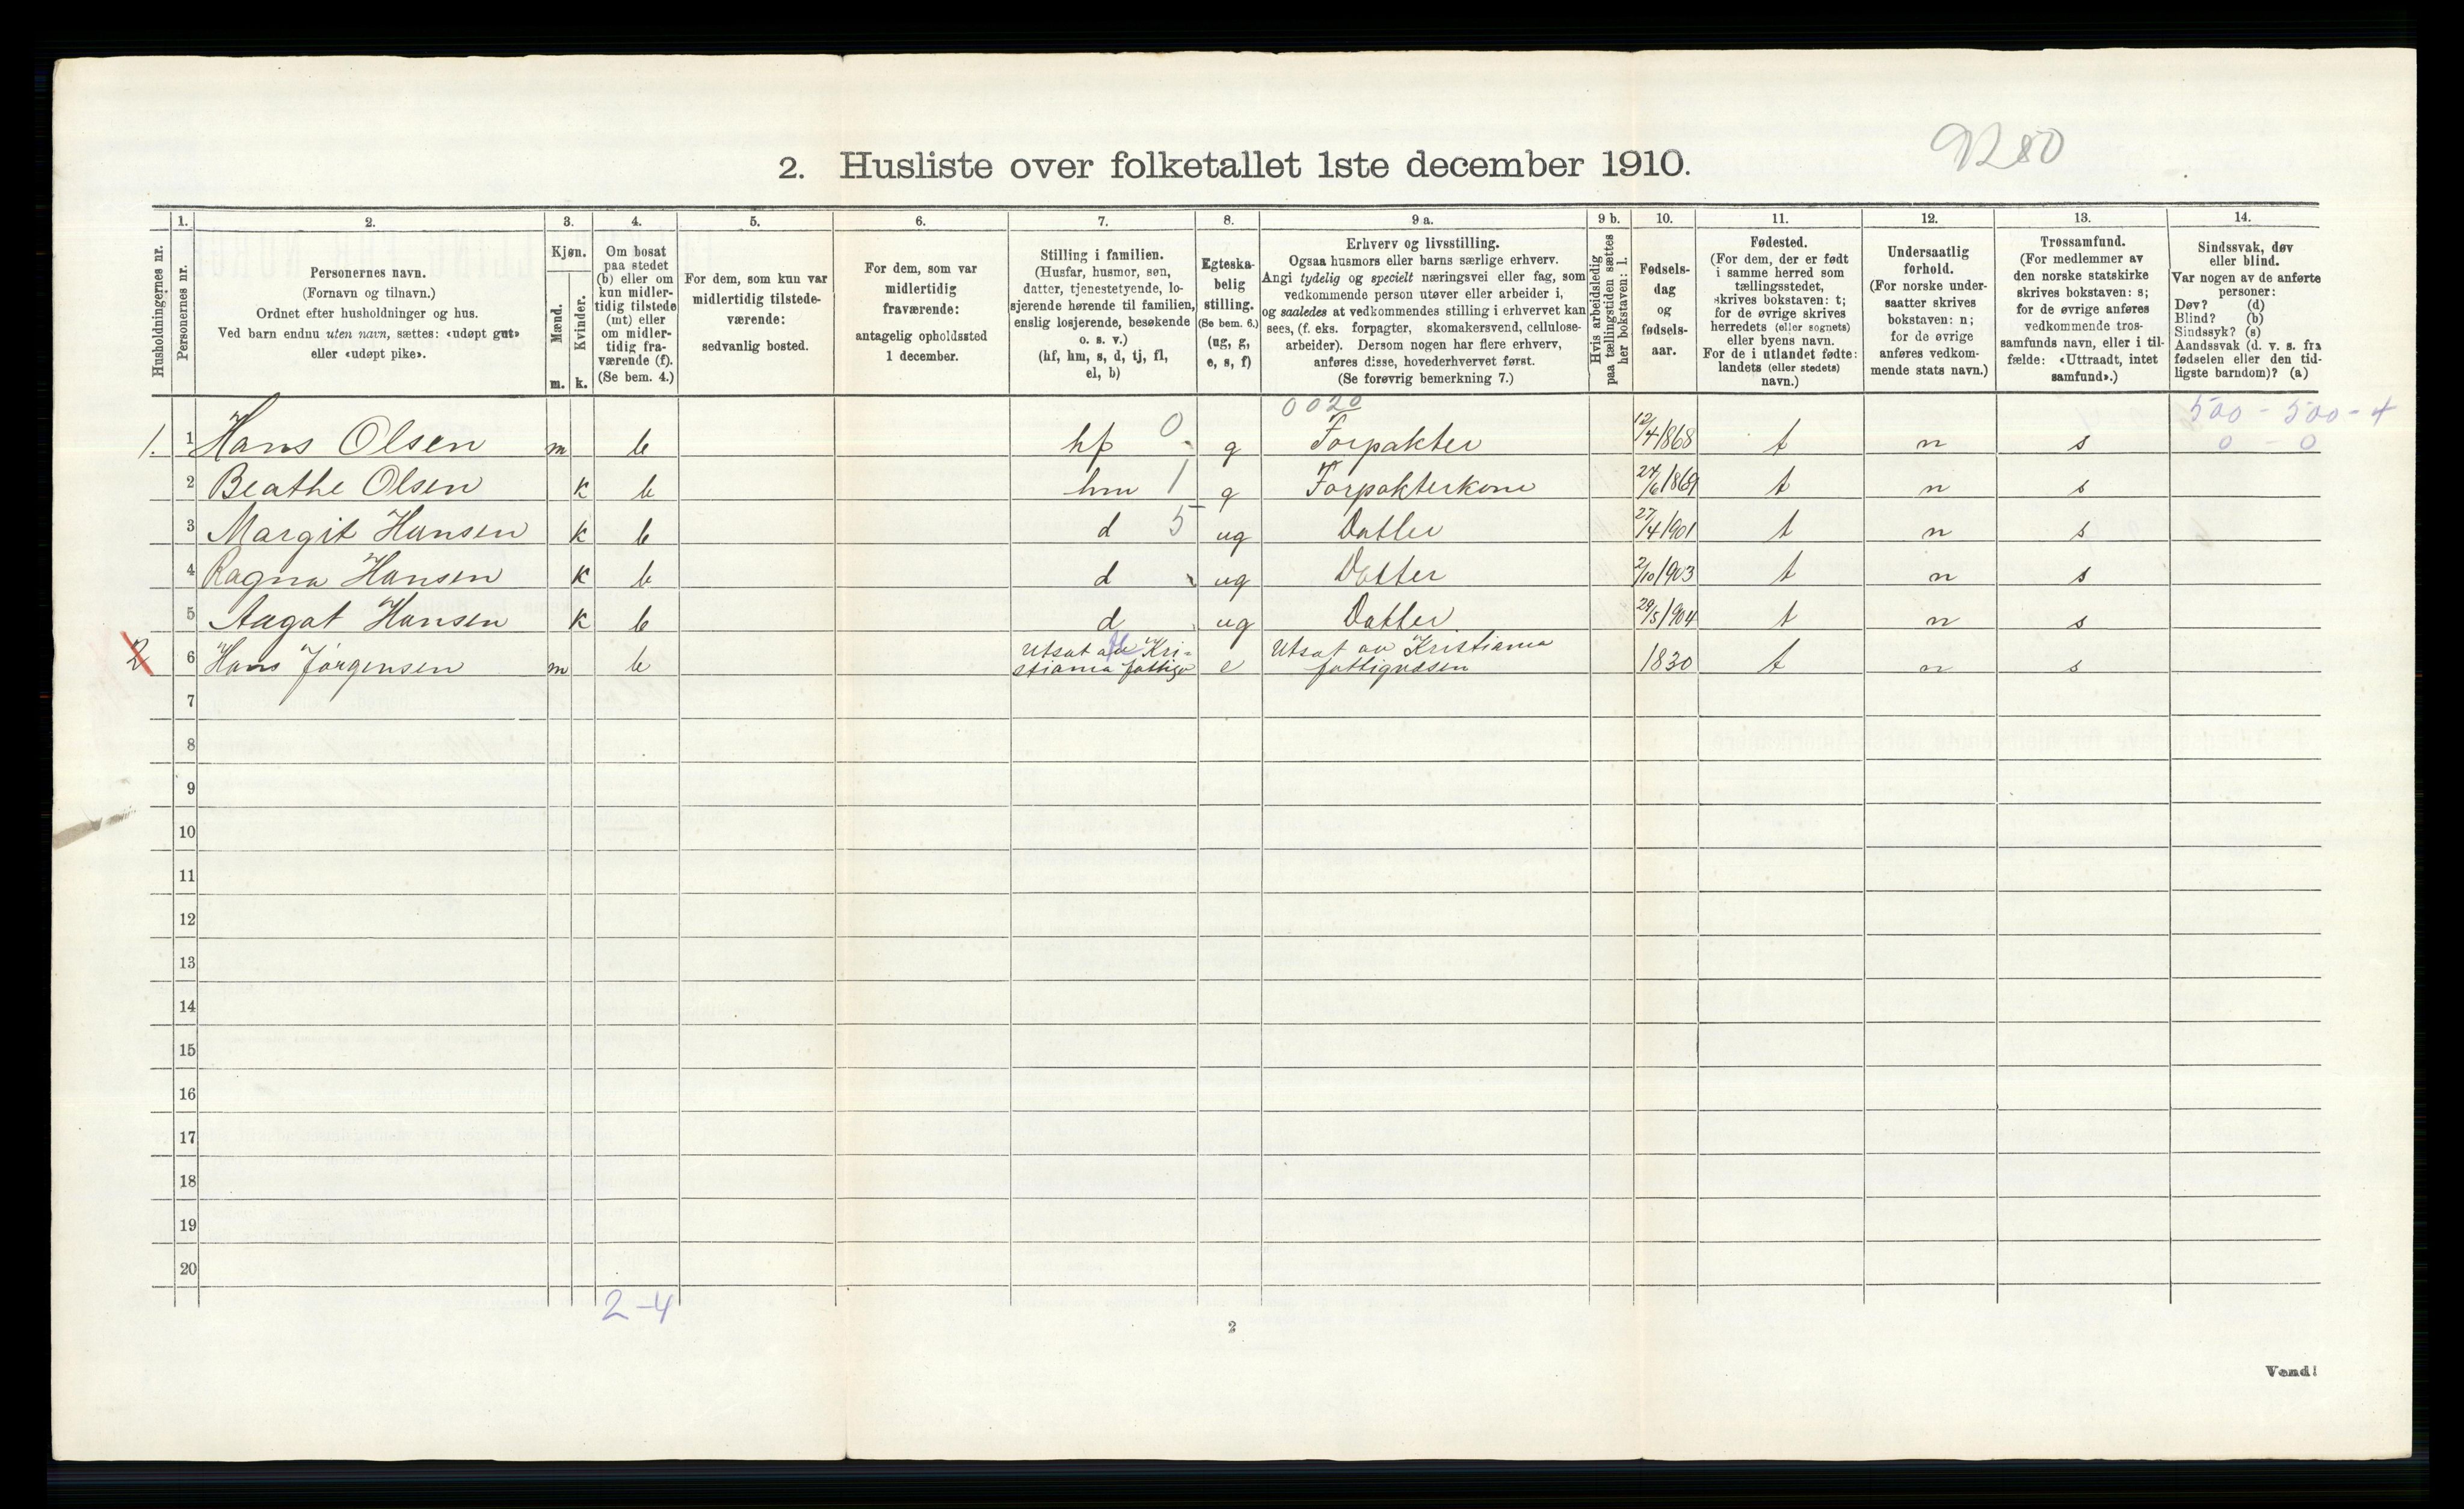 9280
2. Husliste over folketallet 1ste december 1910.
Husholdningernes nr.
1.
Personernes nr.
2.
Personernes navn.
(Fornavn og tilnavn.)
Ordnet efter husholdninger og hus.
Ved barn endnu uten navn, sættes: «udøpt gut»
eller «udøpt pike».
3.
Kjøn.
Mænd.
Kvinder.
m. k.
4.
Om bosat
paa stedet
(b) eller om
kun midler-
tidig tilstede
(mt) eller
om midler-
tidig fra-
værende (f).
(Se bem. 4.)
5.
For dem, som kun var
midlertidig tilstede-
værende:
sedvanlig bosted.
6.
For dem, som var
midlertidig
fraværende:
antagelig opholdssted
1 december.
7.
Stilling i familien.
(Husfar, husmor, søn,
datter, tjenestetyende, lo-
sjerende hørende til familien,
enslig losjerende, besøkende
o. s. v.)
(hf, hm, s, d, tj, fl,
el, b)
8.
Egteska-
belig
stilling.
(Se bem. 6.)
(ug, g,
e, s, f)
9 a.
Erhverv og livsstilling.
Ogsaa husmors eller barns særlige erhverv.
Angi tydelig og specielt næringsvei eller fag, som
vedkommende person utøver eller arbeider i,
og saaledes at vedkommendes stilling i erhvervet kan
sees, (f. eks. forpagter, skomakersvend, cellulose-
arbeider). Dersom nogen har flere erhverv,
anføres disse, hovederhvervet først.
(Se forøvrig bemerkning 7.)
9 b.
Hvis arbeidsledig
paa tællingstiden sættes
her bokstaven: l.
10.
Fødsels-
dag
og
fødsels-
aar.
11.
Fødested.
(For dem, der er født
i samme herred som
tællingsstedet,
skrives bokstaven: t;
for de øvrige skrives
herredets (eller sognets)
eller byens navn.
For de i utlandet fødte:
landets (eller stedets)
navn.)
12.
Undersaatlig
forhold.
(For norske under-
saatter skrives
bokstaven: n;
for de øvrige
anføres vedkom-
mende stats navn.)
13.
Trossamfund.
(For medlemmer av
den norske statskirke
skrives bokstaven: s;
for de øvrige anføres
vedkommende tros-
samfunds navn, eller i til-
fælde: «Uttraadt, intet
samfund».)
14.
Sindssvak, døv
eller blind.
Var nogen av de anførte
personer:
Døv? (d)
Blind? (b)
Sindssyk? (s)
Aandssvak (d. v. s. fra
fødselen eller den tid-
ligste barndom)? (a)
0020 500 - 500 - 4
1. 1 Hans Olsen m b hf 0 g Forpakter 12/4 1868 t n s 0 - 0
2 Beathe Olsen k b hm 1 g Forpakterkone 24/6 1869 t n s
3 Margit Hansen k b d 5 ug Datter 27/4 1901 t n s
4 Ragna Hansen k b d ug Datter 2/10 1903 t n s
5 Aagot Hansen k b d ug Datter 29/5 1904 t n s
2 6 Hans Jørgensen m b Utsat av Kri-
stiania fattigv e Utsat av Kristiania
fattigvæsen 1830 t n s
7
8
9
10
11
12
13
14
15
16
17
18
19
20
2-4
2
Vend!